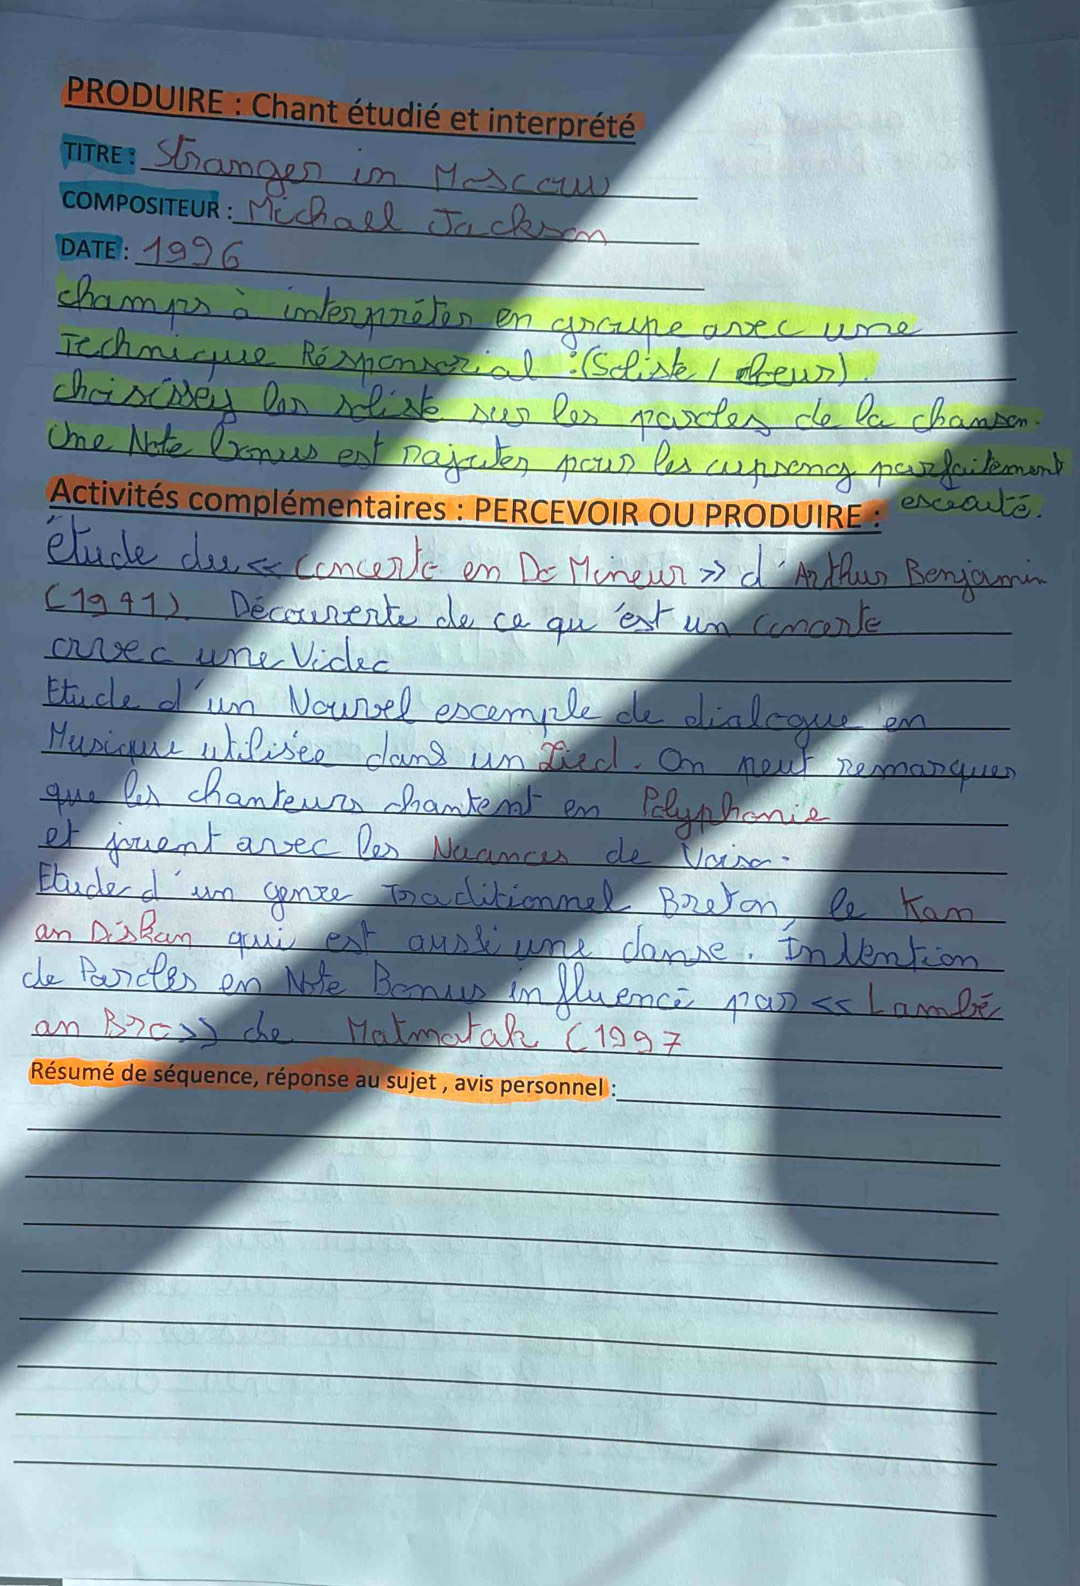 PRODUIRE : Chant étudié et interprété
TITRE : Stranger in Moscow
COMPOSITEUR : Michael Jackson
DATE : 1996
champs à interpréter en groupe avec une
Technique Résponsorial : (Soliste / choeur).
choisissey les soliste sur les paroles de la chanson.
Une Note bonus est rajouter pour les cuprency parfaitement
esceauté.
Activités complémentaires : PERCEVOIR OU PRODUIRE :
étude du « Concerto en Do Mineur » d'Arthur Benjamin
(1941). Découverte de ce qu'est un concerto
avec une Vidéo
Etude d'un Nouvel escemple de dialogue en
Musique utilisée dans un Lied. On peut remarquer
que les chanteurs chantent en Polyphonie
et jouent avec les Nuances de Voix.
Etude d'un genre Traditionnel Breton, le Kan
an Diskan qui est aussi une danse. Invention
de Paroles en Note Bonus influencé par « Lambé
an Dro » de Matmatah (1997
Résumé de séquence, réponse au sujet , avis personnel :